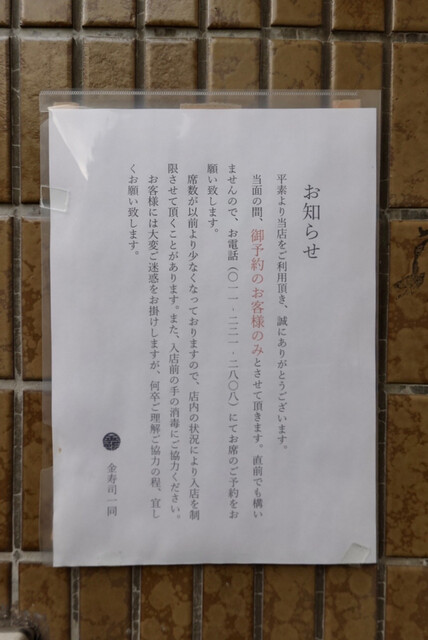 お知らせ
平素より当店をご利用頂き、誠にありがとうございます。
当面の間、御予約のお客様のみとさせて頂きます。直前でも構い
ませんので、お電話（〇一一・二二一・二八〇八）にてお席のご予約をお
願い致します。
席数が以前より少なくなっておりますので、店内の状況により入店を制
限させて頂くことがあります。また、入店前の手の消毒にご協力ください。
お客様には大変ご迷惑をお掛けしますが、何卒ご理解ご協力の程、宜し
くお願い致します。
金寿司一同